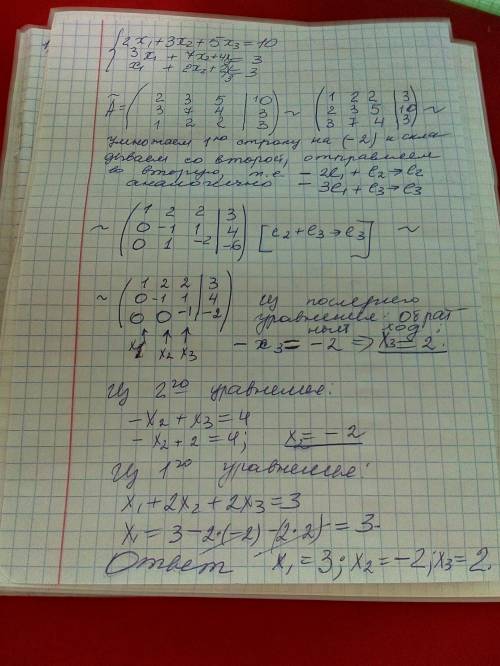 2x₁+3x₂+5x₃=10
3x₁+7x₂+4x₃=3
x₁+2x₂+2x₃=3
Ã = ( 2 3 5 | 10 ) ~ ( 1 2 2 | 3 ) ~
( 3 7 4 | 3 ) ( 2 3 5 | 10 )
( 1 2 2 | 3 ) ( 3 7 4 | 3 )
умножаем 1ую строку на (-2) и скла
дываем со второй, отправляем
во вторую, т.е -2l₁+l₂→l₂
аналогично -3l₁+l₃→l₃
~ ( 1 2 2 | 3 )
( 0 -1 1 | 4 ) [l₂+l₃→l₃] ~
( 0 1 -2 | -6 )
~ ( 1 2 2 | 3 ) из последнего
( 0 -1 1 | 4 ) уравнения: обрат
( 0 0 -1 | -2 ) ный ход:
x₁ x₂ x₃ -x₃=-2 ⇒ x₃=2.
Из 2го уравнения:
-x₂+x₃=4
-x₂+2=4; x₂=-2
Из 1го уравнения:
x₁+2x₂+2x₃=3
x₁=3-2·(-2)-(2·2)=3.
Ответ x₁=3; x₂=-2; x₃=2.